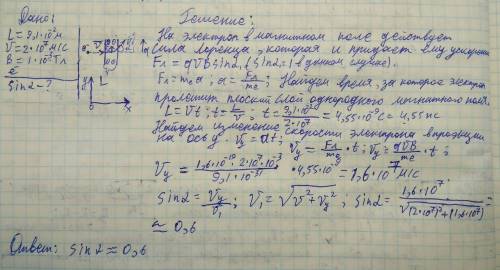 Дано:
L = 9,1·10⁻² м
V = 2·10⁷ м/с
B = 1·10⁻³ Тл
e
sinα - ?
Решение:
На электрон в магнитном поле действует
сила Лоренца, которая и придаёт ему ускорение
Fл = qVB sinα, (sinα = 1 в данном случае).
Fл = mₑa, a = Fл/mₑ; Найдём время, за которое электрон
пролетит плоский слой однородного магнитного поля.
L = Vt; t = L/V; t = 9,1·10⁻²/2·10⁷ = 4,55·10⁻⁹ c = 4,55 нс
Найдём изменение скорости электрона в проекции
на ось y. Vy = at; Vy = Fл/mₑ · t; Vy = qVB/mₑ · t;
Vy = 1,6·10⁻¹⁹·2·10⁷·10⁻³/9,1·10⁻³¹ · 4,55·10⁻⁹ = 1,6·10⁷ м/с
sinα = Vy/V₁; V₁ = √V²+Vy²; sinα = 1,6·10⁷/√(2·10⁷)²+(1,6·10⁷)² =
≈ 0,6
Ответ: sinα ≈ 0,6